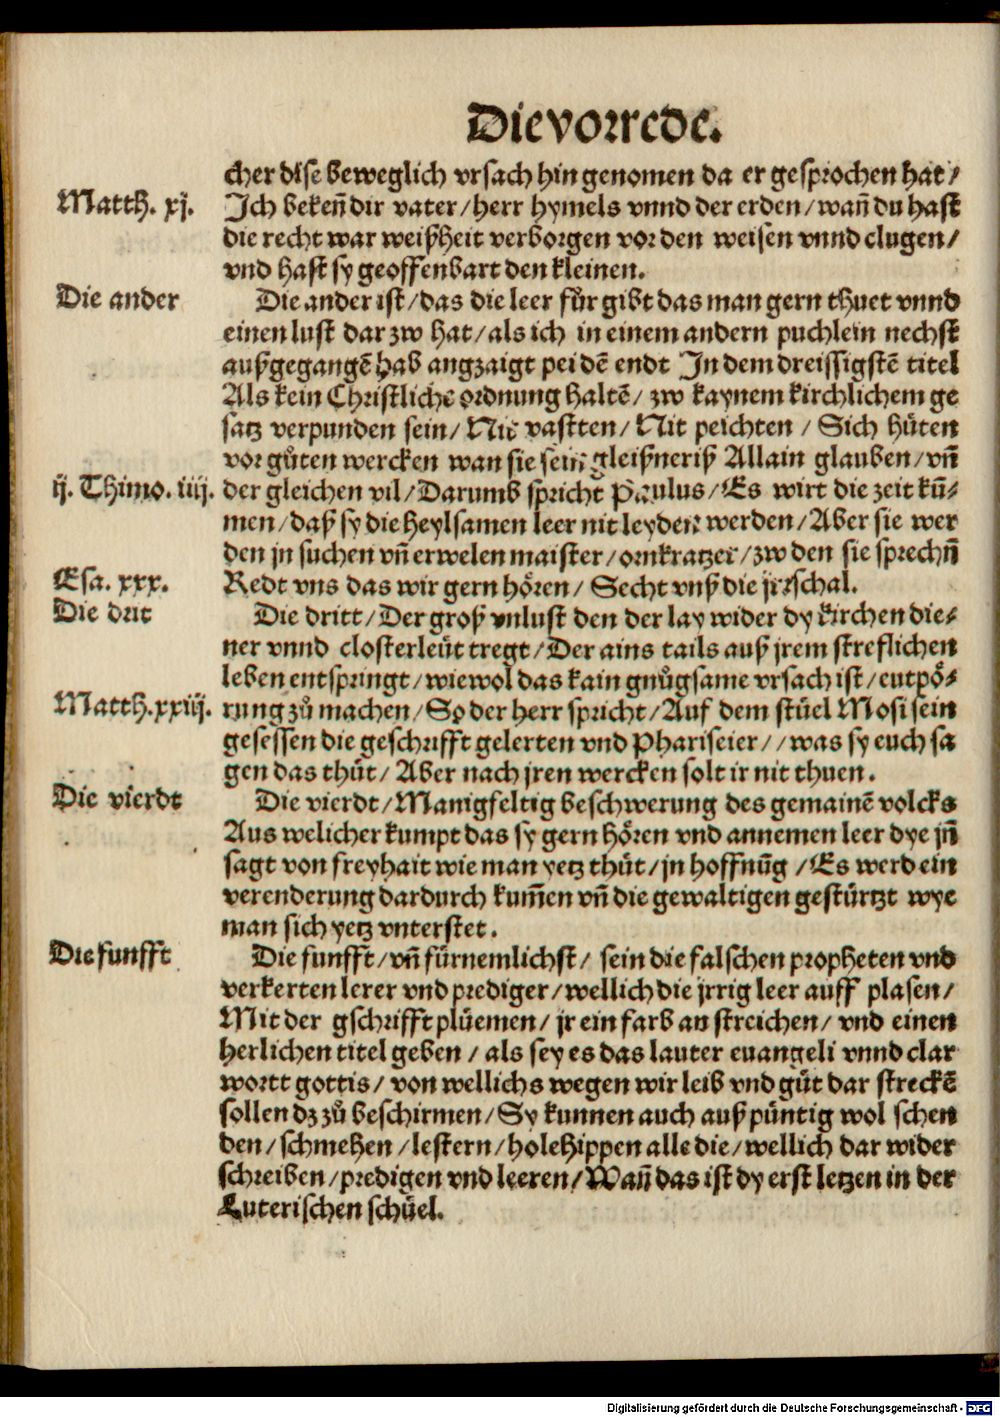 Die vorrede.
cher dise beweglich vrsach hin genomen da er gesprochen hat /
Matth. xj.
Jch bekeñ dir vater / herr hymels vnnd der erden / wañ du hast
die recht war weißheit verborgen vor den weisen vnnd clugen /
vnd hast sy geoffenbart den kleinen.
Die ander
Die ander ist / das die leer für gibt das man gern thuet vnnd
einen lust dar zw hat / als ich in einem andern puchlein nechst
außgegangẽ hab angzaigt pei dẽ endt Jn dem dreissigstẽ titel
Als kein Christlichẽ ordnung haltẽ / zw kaynem kirchlichem ge
satz verpunden sein / Nit vastten / Nit peichten / Sich hüten
vor gůten wercken wan sie sein gleißneriß Allain glauben / vñ
ij. Thimo. iiij.
der gleichen vil / Darumb spricht Paulus / Es wirt die zeit kũ⸗
men / daß sy die heylsamen leer nit leyden werden / Aber sie wer
den jn suchen vñ erwelen maister / ornkratzer / zw den sie sprechñ
Esa. xxx.
Redt vns das wir gern hören / Secht vnß die jrrschal.
Die drit
Die dritt / Der groß vnlust den der lay wider dy kirchen die⸗
ner vnnd closterleüt tregt / Der ains tails auß jrem streflichen
leben entspringt / wiewol das kain gnůgsame vrsach ist / eutpö⸗
Matth. xxiij.
rung zů machen / So der herr spricht / Auf dem stůel Mosi sein
gesessen die geschrifft gelerten vnd Phariseier / / was sy euch sa
gen das thüt / Aber nach jren wercken solt ir nit thuen.
Die vierdt
Die vierdt / Manigfeltig beschwerung des gemainẽ volcks
Aus welicher kumpt das sy gern hören vnd annemen leer dye jñ
sagt von freyhait wie man yetz thüt / jn hoffnũg / Es werd ein
verenderung dardurch kum̃en vñ die gewaltigen gestürtzt wye
man sich yetz vnterstet.
Die funfft
Die funfft / vñ fürnemlichst / sein die falschen propheten vnd
verkerten lerer vnd prediger / wellich die jrrig leer auff plasen /
Mit der gschrifft plüemen / jr ein farb an streichen / vnd einen
herlichen titel geben / als sey es das lauter euangeli vnnd clar
wortt gottis / von wellichs wegen wir leib vnd gůt dar streckẽ
sollen dz zů beschirmen / Sy kunnen auch auß püntig wol schen
den / schmehen / lestern / holehippen alle die / wellich dar wider
schreiben / predigen vnd leeren / Wañ das ist dy erst letzen in der
Luterischen schůel.
Digitalisierung gefördert durch die Deutsche Forschungsgemeinschaft - DFG